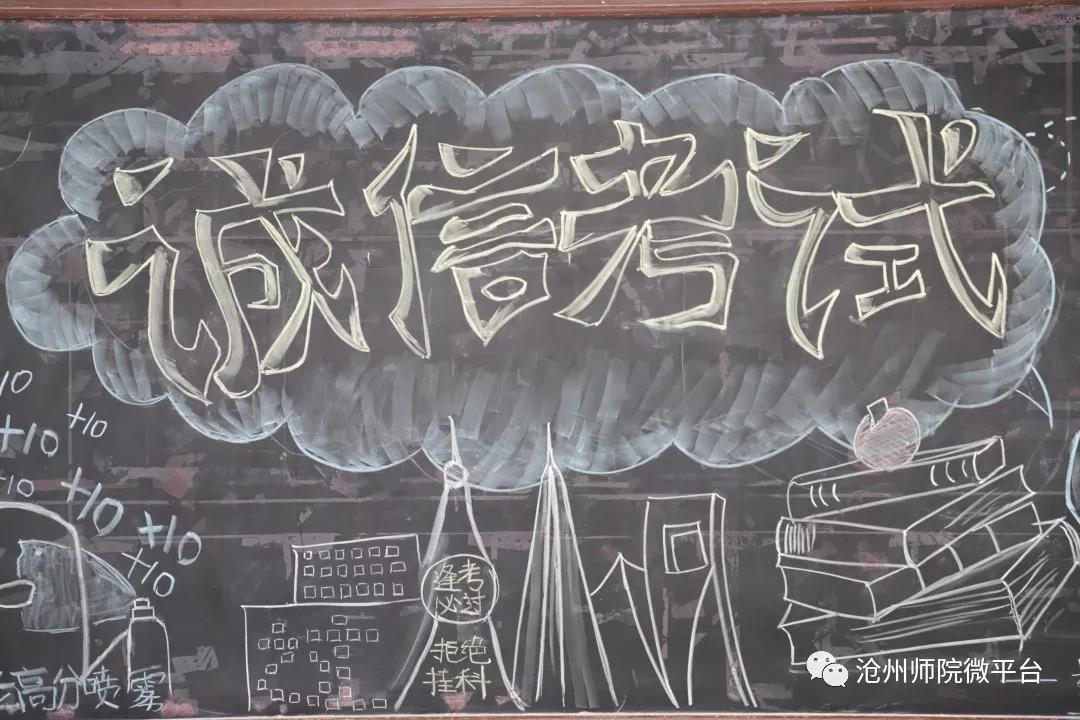 诚信考试
+10
+10
+10
+10
+10
+10
+10
逢考
必过
拒绝
挂科
高分喷雾
沧州师院微平台